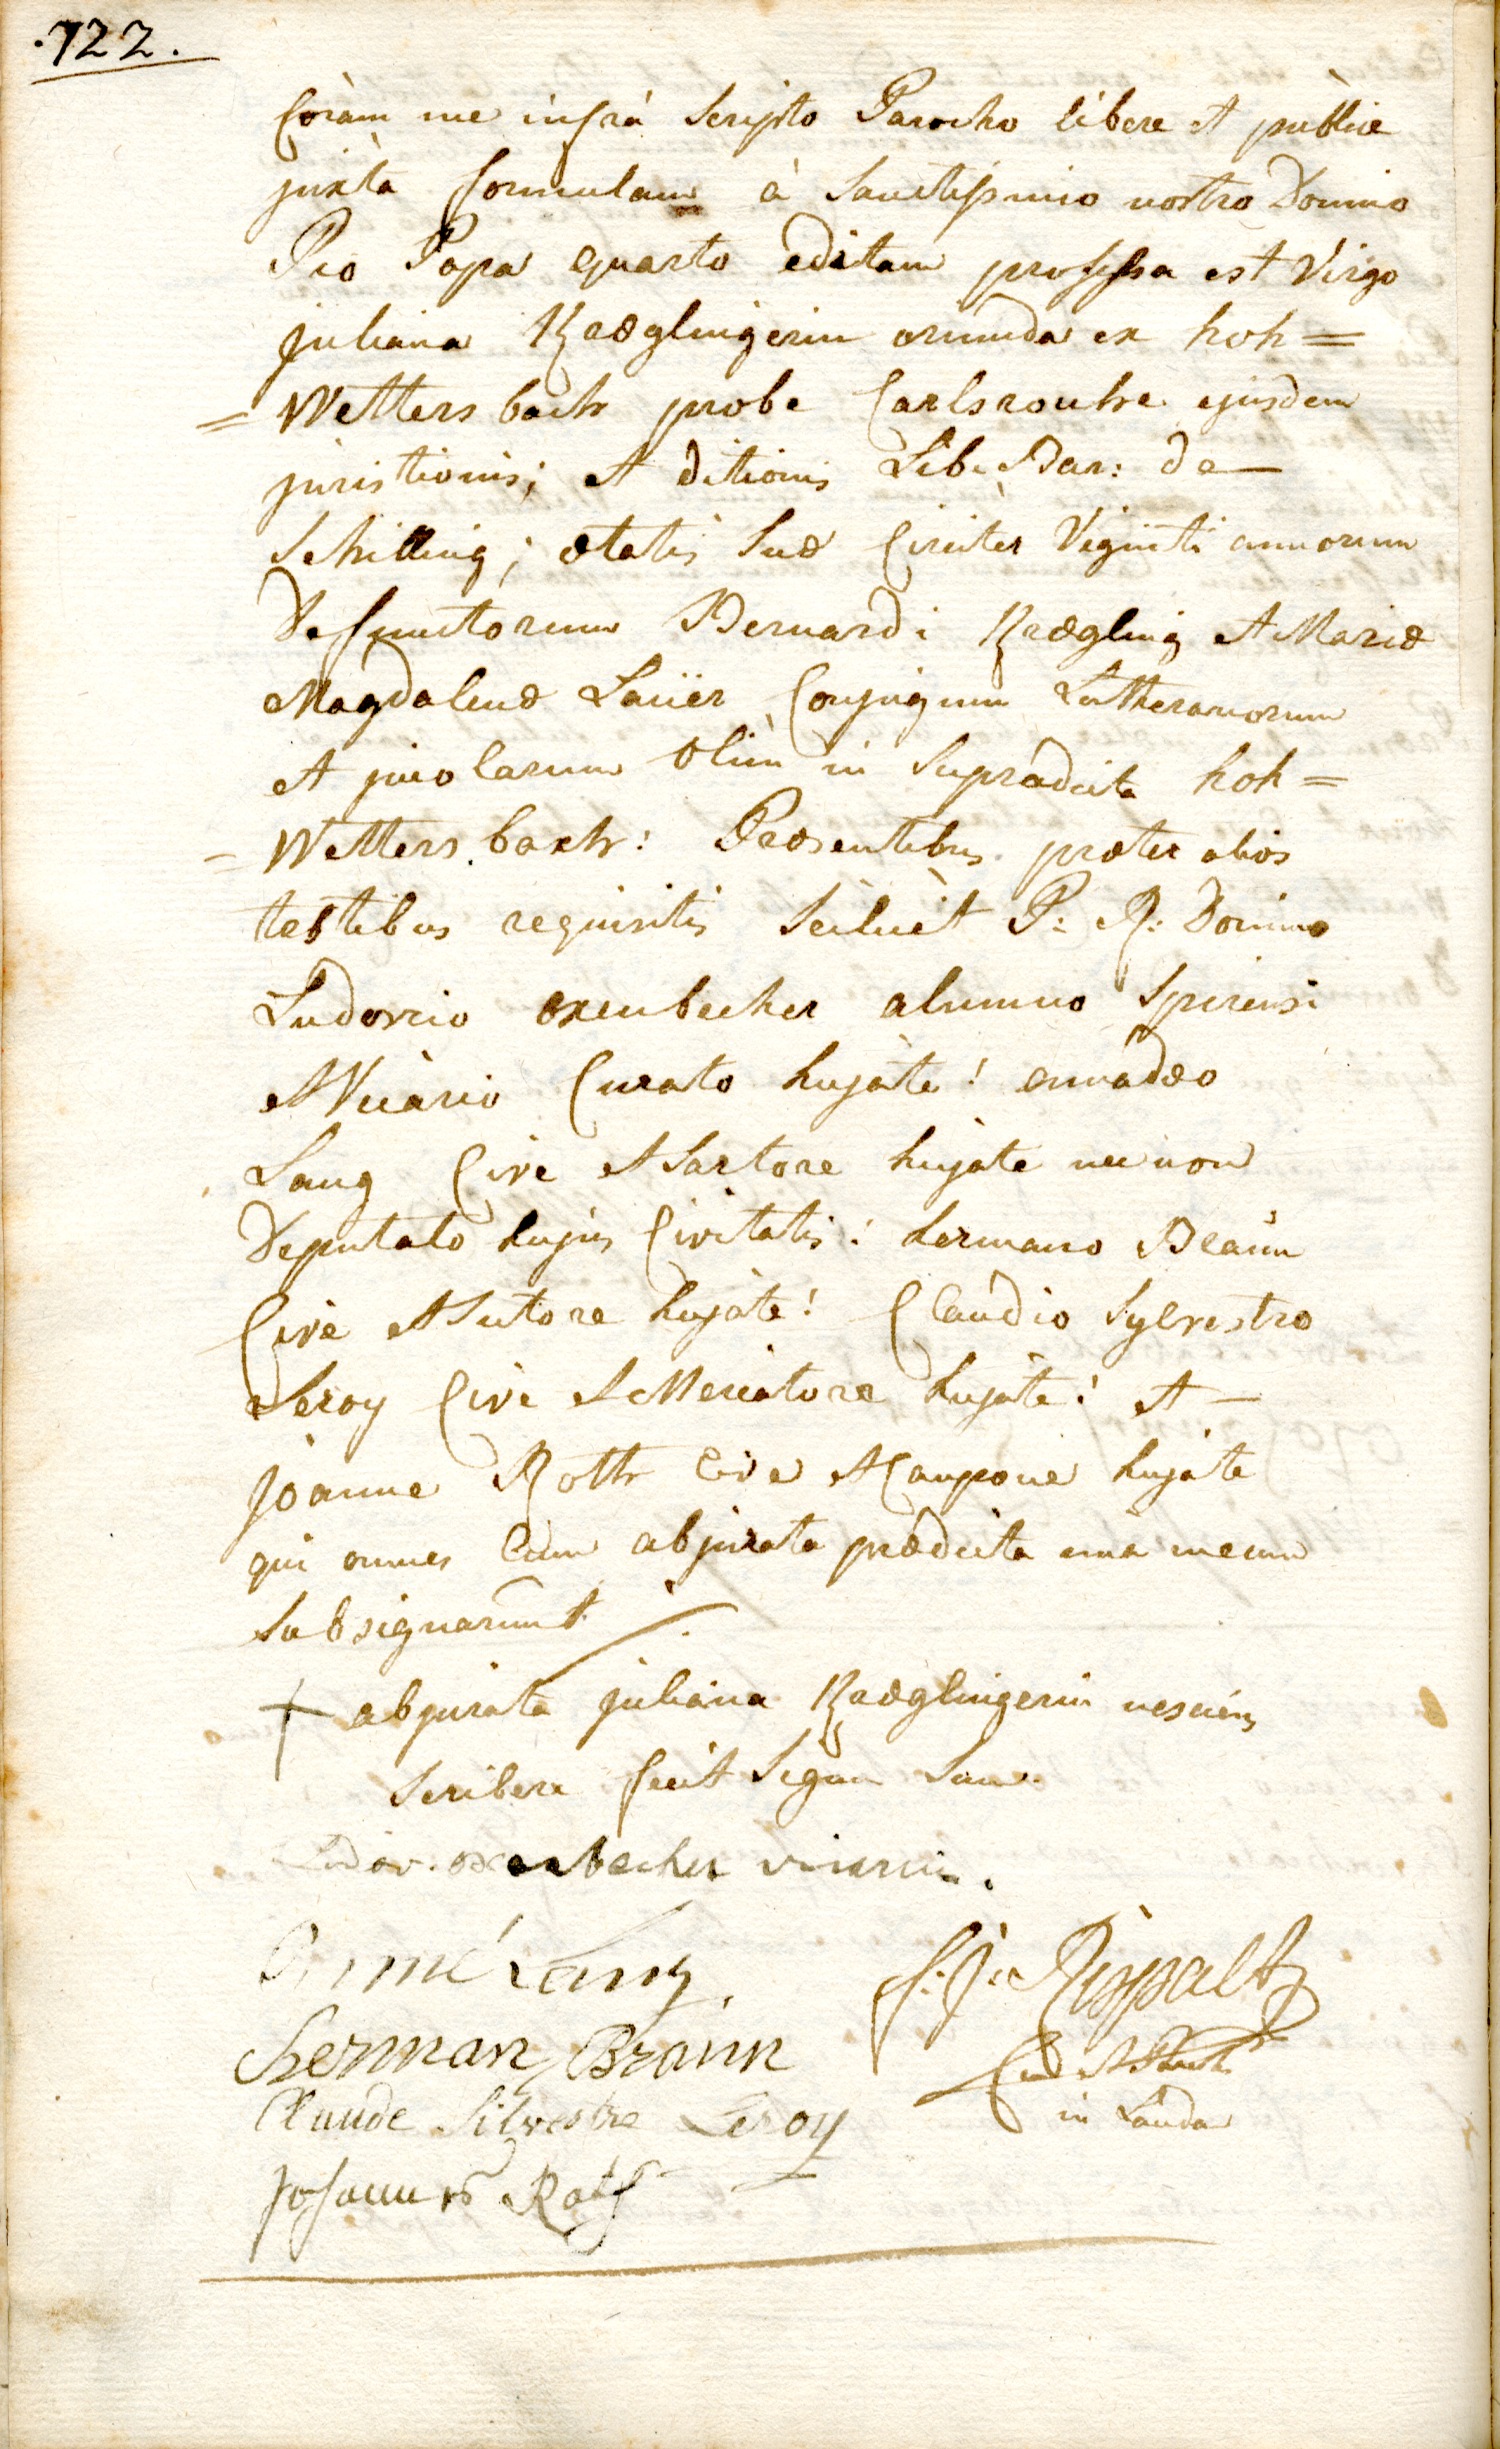 .122.
Coràm me infrà Scripto Parocho libere et publice
juxta formulam à Sanctissimo nostro Domino
Pio Papa quarto editam professa est Virgo
juliana Kræglingerin oriunda ex hoh=
=Wettersbach probe Carlsrouhe ejusdem
juristionis; et ditionis Lib. Bar: de
Schilling; ætatis Suæ Circiter Viginti annorum
Defunctorum Bernardi Krægling et Mariæ
Magdalenæ Laüer Conjugum Lutheranorum
et incolarum Olim in Supradicta hoh=
=Wettersbach: Præsentibus præter alios
testibus requisitis Scilicèt P: R: Domino
Ludovico oxenbecher alumno Spirensi
et Vicàrio Curato hujàte! amadæo
Lang Cive et Sartore hujate nec non
Deputato hujus Civitatis: hermano Braun
Cive et Sutore hujate! Claudio Sylvestro
Leroy Cive et Mercatore hujàte! et
joanne Roth Cive et Caupone hujate
qui omnes Cum abjurata prædicta una mecum
Subsignarunt
+ abjurata juliana Kræglingerin nesciens
Scribere fecit Signum Suum.
Ludov. oxenbecher vicarius.
Aimé Lang
f: J: Rispaltz
Herman Braun
in Landa
Claude Silvestre Leroy
Johannes Roth